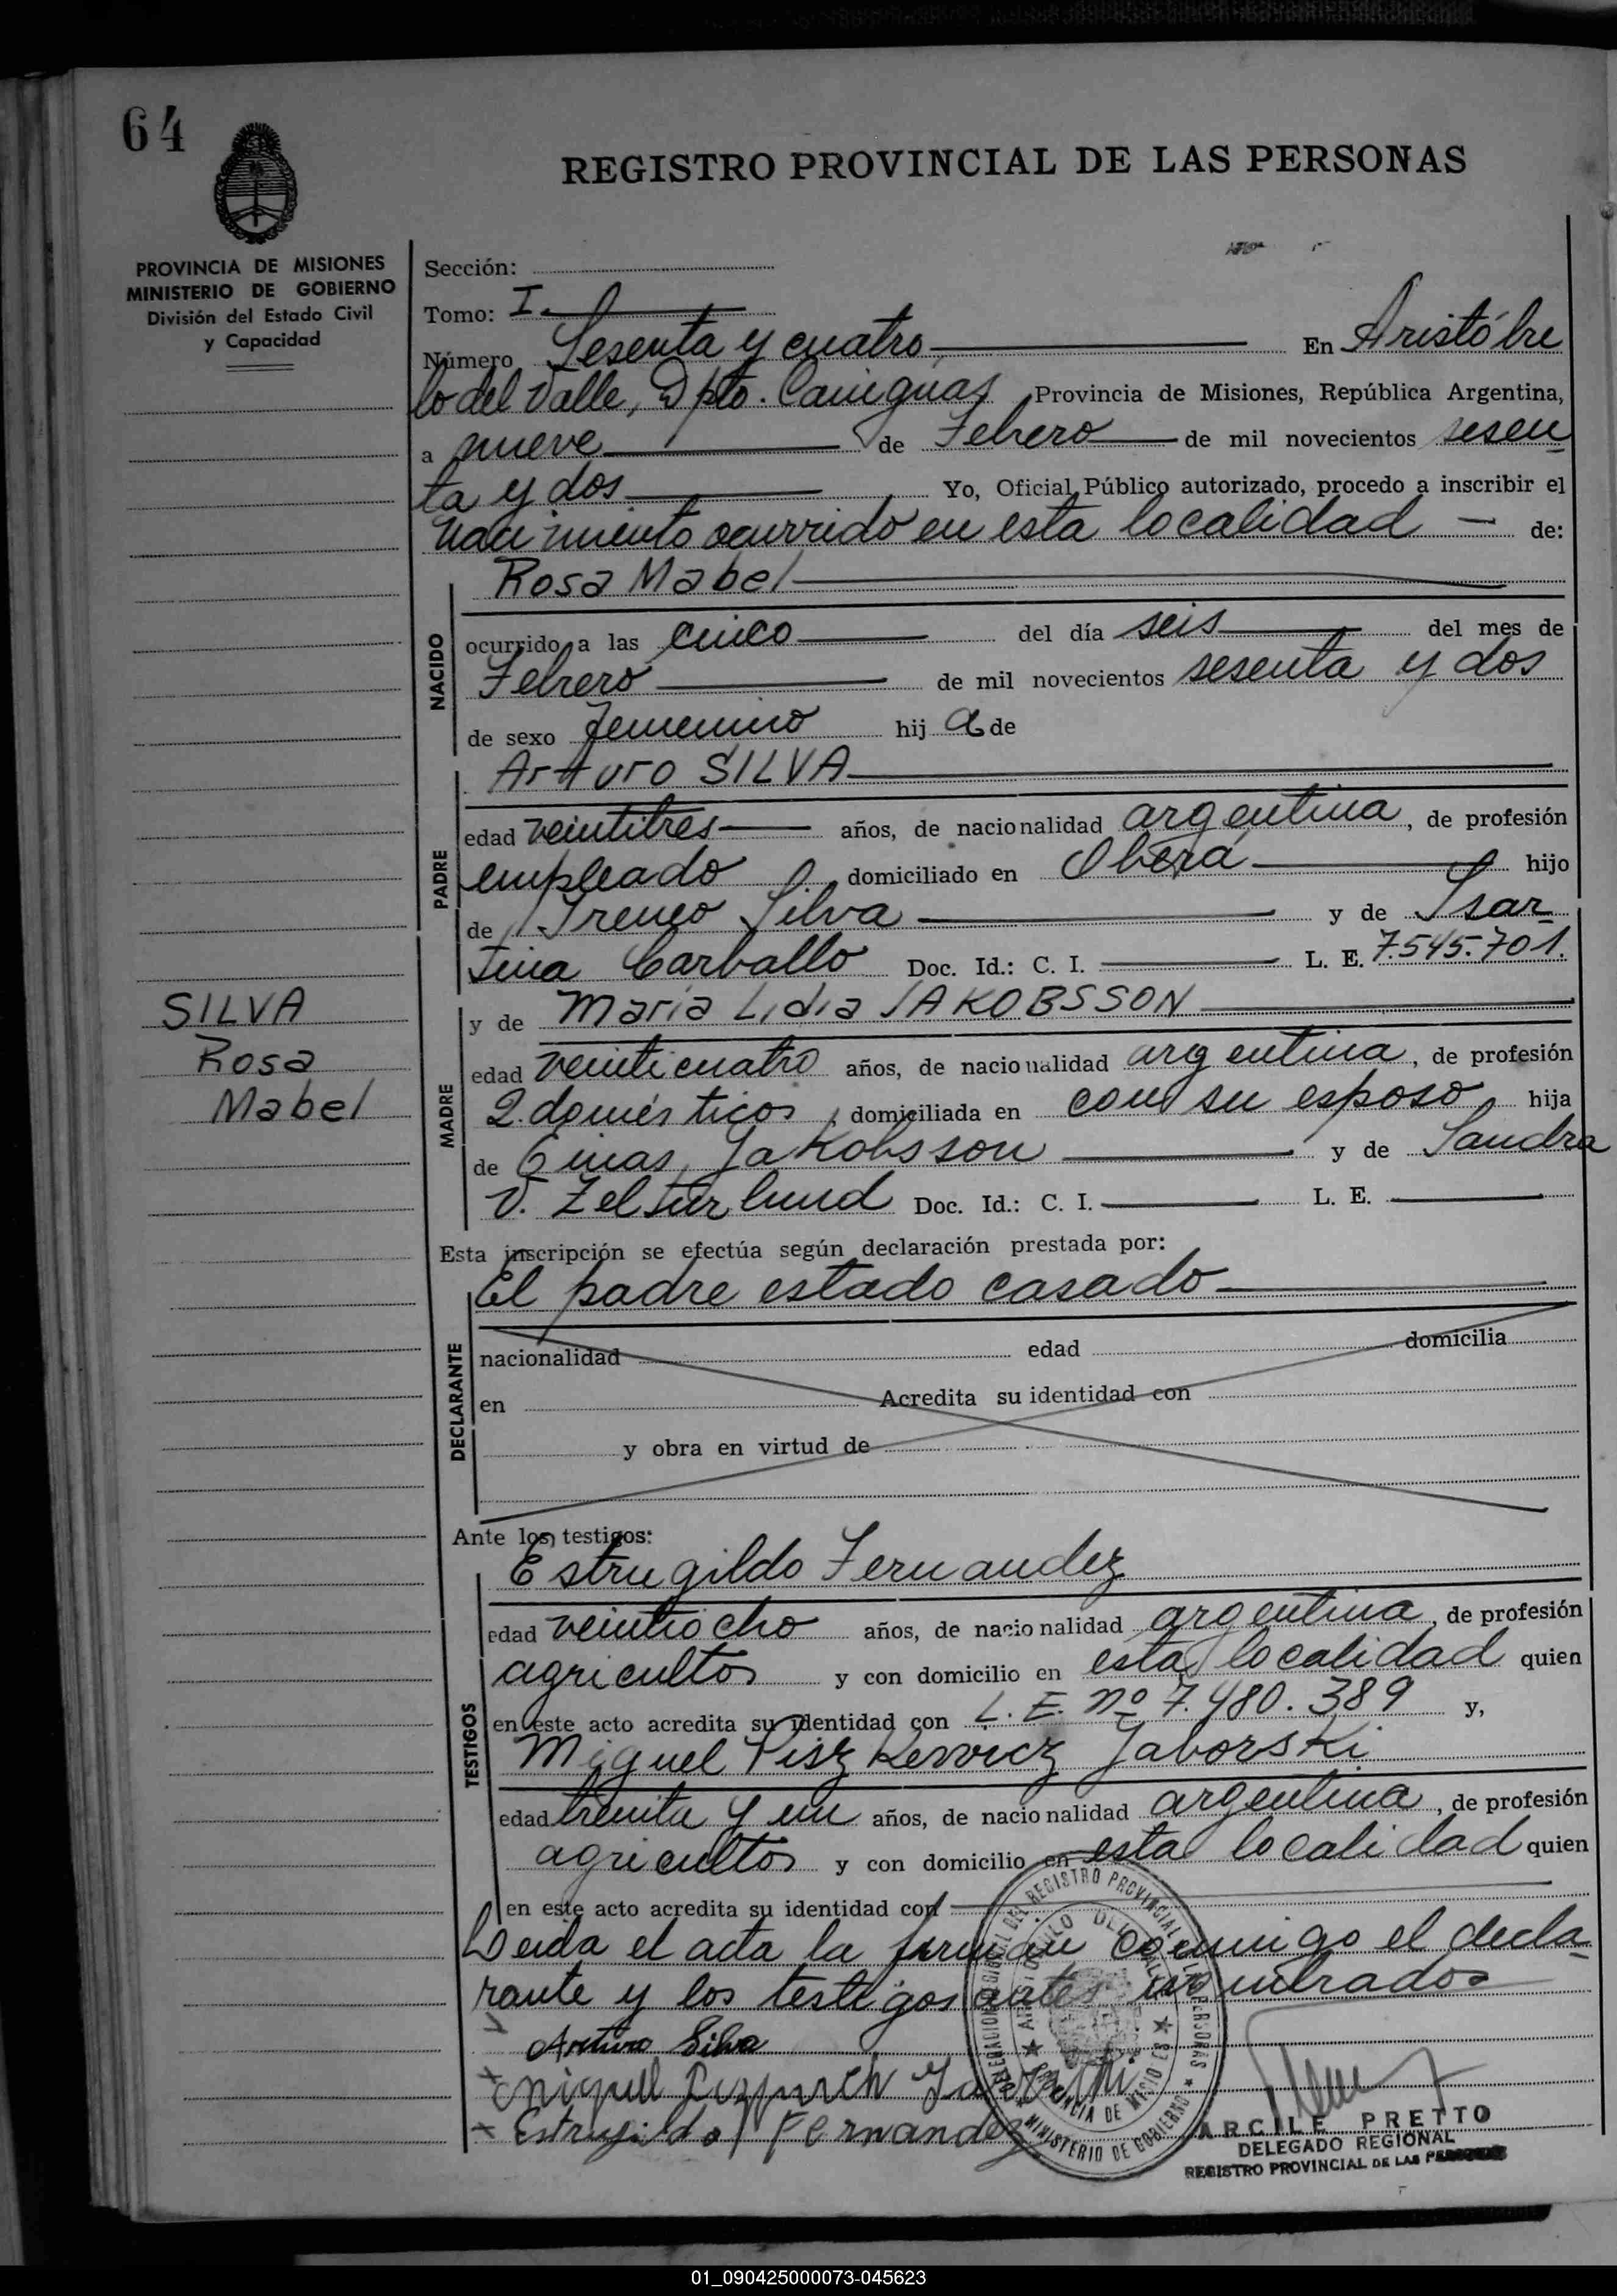 64
REGISTRO PROVINCIAL DE LAS PERSONAS
PROVINCIA DE MISIONES
MINISTERIO DE GOBIERNO
División del Estado Civil
y Capacidad
Sección:
Tomo: I
Número Sesenta y cuatro En Aristóbu
lo del Valle, Dpto. Cainguás Provincia de Misiones, República Argentina,
a nueve de Febrero de mil novecientos sesen
ta y dos Yo, Oficial Público autorizado, procedo a inscribir el
nacimiento ocurrido en esta localidad — de:
Rosa Mabel
NACIDO
ocurrido a las cinco del día seis del mes de
Febrero de mil novecientos sesenta y dos
de sexo femenino hij a de
Arturo SILVA
PADRE
edad veintitres años, de nacionalidad argentina, de profesión
empleado, domiciliado en Oberá hijo
de Ireneo Silva y de
Carballo Doc. Id.: C. I. L. E. 7.545.701.
SILVA
Rosa
Mabel
MADRE
y de Maria Lidia JAKOBSSON
edad veinticuatro años, de nacionalidad argentina, de profesión
Q. domésticos, domiciliada en con su esposo hija
de Jakobsson y de Sandra
V. Doc. Id.: C. I. L. E.
Esta inscripción se efectúa según declaración prestada por:
El padre estado casado
DECLARANTE
nacionalidad edad domicilia
en Acredita su identidad con
y obra en virtud de
Ante los testigos:
Estrugildo Fernandez
TESTIGOS
edad veintiocho años, de nacionalidad argentina, de profesión
agricultor y con domicilio en esta localidad quien
en este acto acredita su identidad con L. E. nº 7.480.389 y,
Miguel Piszkewicz Jaborski
edad treinta y un años, de nacionalidad argentina, de profesión
agricultor y con domicilio en esta localidad quien
en este acto acredita su identidad con
Leida el acta la firman conmigo el decla
rante y los testigos antes nombrados
Arturo Silva
Miguel
Estrugildo Fernandez
DEL REGISTRO PROVINCIAL DE LAS PERSONAS
PROVINCIA DE MISIONES
MINISTERIO DE GOBIERNO
ARCILE PRETTO
DELEGADO REGIONAL
REGISTRO PROVINCIAL DE LAS PERSONAS
01_090425000073-045623